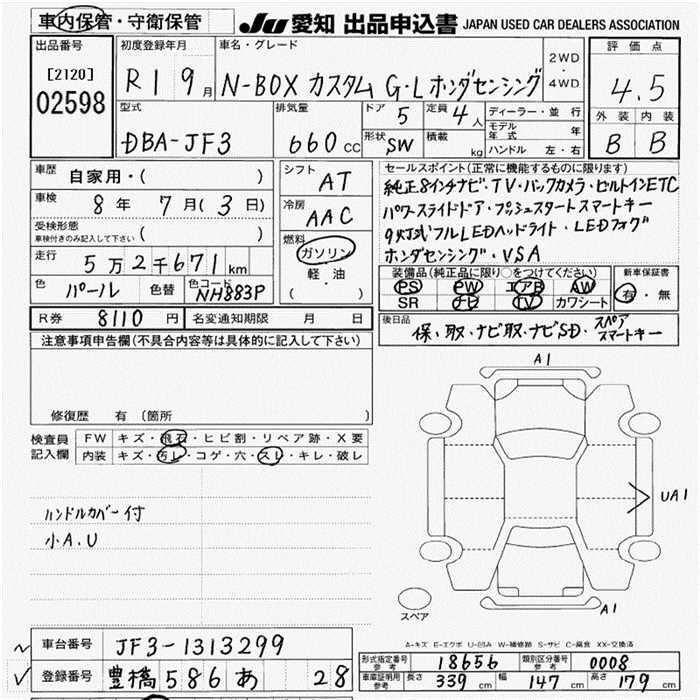 車内保管・守衛保管 JU 愛知 出品申込書 JAPAN USED CAR DEALERS ASSOCIATION
出品番号 [2120] 02598
初度登録年月 R1 9月
車名・グレード N-BOX カスタム G・Lホンダセンシング
2WD・4WD
評価点 4.5
外装 B 内装 B
型式 DBA-JF3
排気量 660 CC
ドア 5 定員 4人
形状 SW 積載 kg
ディーラー・並行
モデル年式 年
ハンドル 左・右
車歴 自家用・( )
車検 8年 7月(3日)
受検形態 ( )
車検付きのみ記入して下さい
走行 5万2千671km
色 パール 色替 色コード NH883P
シフト AT
冷房 AAC
燃料 ガソリン 軽・油 ( )
セールスポイント(正常に機能するものに限ります)
純正8インチナビ・TV・バックカメラ・ビルトインETC
パワースライドドア・プッシュスタートスマートキー
9灯式フルLEDヘッドライト・LEDフォグ
ホンダセンシング・VSA
装備品(純正品に限り○をつけてください) 新車保証書
PS PW エアB AW 有・無
SR ナビ TV カワシート
R券 8110円 名変通知期限 月 日
後日品 保・取・ナビ取・ナビSD・スペアスマートキー
注意事項申告欄(不具合内容等は具体的に記入して下さい)
修復歴 有(箇所 )
検査員記入欄
FW キズ・飛石・ヒビ割・リペア跡・X要
内装 キズ・汚レ・コゲ・穴・スレ・キレ・破レ
ハンドルカバー付
小A.U
A1
UA1
A1
スペア
A-キズ E-エクボ U-凹み W-補修跡 S-サビ C-腐食 XX-交換済
車台番号 JF3-1313299
登録番号 豊橋 586 あ 28
形式指定番号 参考 18656 類別区分番号 参考 0008
車庫証明用 参考 長さ 339cm 幅 147cm 高さ 179cm